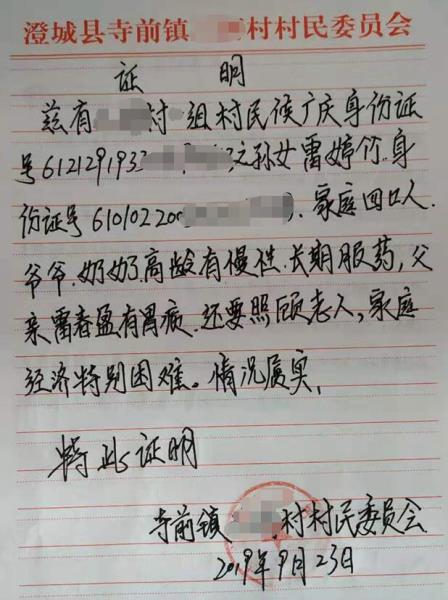 澄城县寺前镇 村村民委员会
证 明
兹有 村 组村民候广庆身份证
号612129193 之孙女雷婷竹.身
份证号610102200 .家庭四口人.
爷爷.奶奶高龄有慢性.长期服药,父
亲雷春盈有胃病.还要照顾老人,家庭
经济特别困难。情况属实,
特此证明
寺前镇 村村民委员会
2019年9月23日